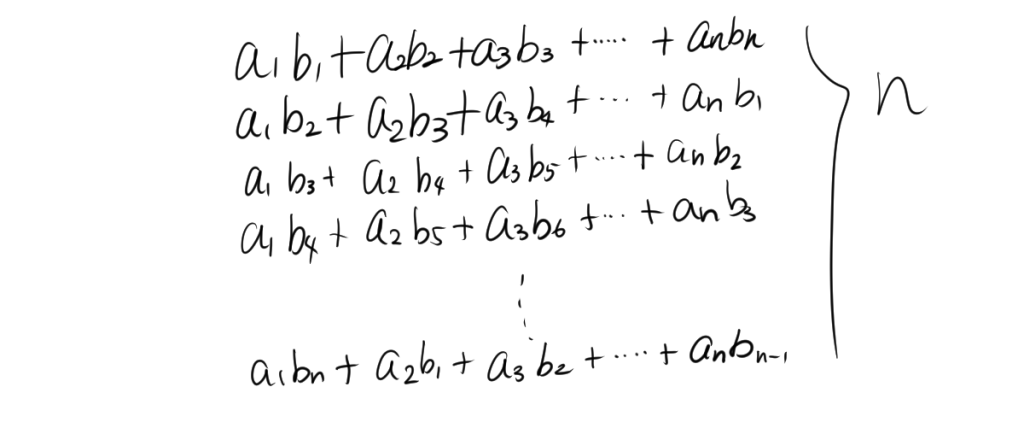 a₁b₁+a₂b₂+a₃b₃+.....+anbn
a₁b₂+a₂b₃+a₃b₄+...+anb₁
a₁b₃+a₂b₄+a₃b₅+....+anb₂
a₁b₄+a₂b₅+a₃b₆+...+anb₃
n
⋮
a₁bn+a₂b₁+a₃b₂+....+anbn-₁